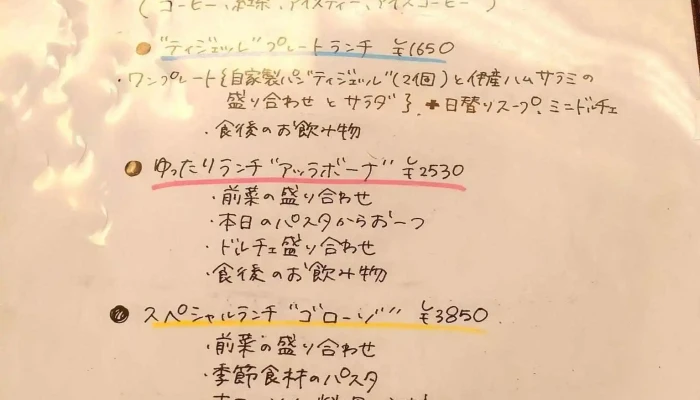 (コーヒー、紅茶、アイスティー、アイスコーヒー)
"ティジェッレ"プレートランチ ¥1650
・ワンプレート{自家製パン"ティジェッレ"(2個)と伊産ハムサラミの
盛り合わせとサラダ}.+日替りスープ.ミニドルチェ
・食後のお飲み物
ゆったりランチ"アッラボーナ" ¥2530
・前菜の盛り合わせ
・本日のパスタからお一つ
・ドルチェ盛り合わせ
・食後のお飲み物
スペシャルランチ"ゴローゾ" ¥3850
・前菜の盛り合わせ
・季節食材のパスタ